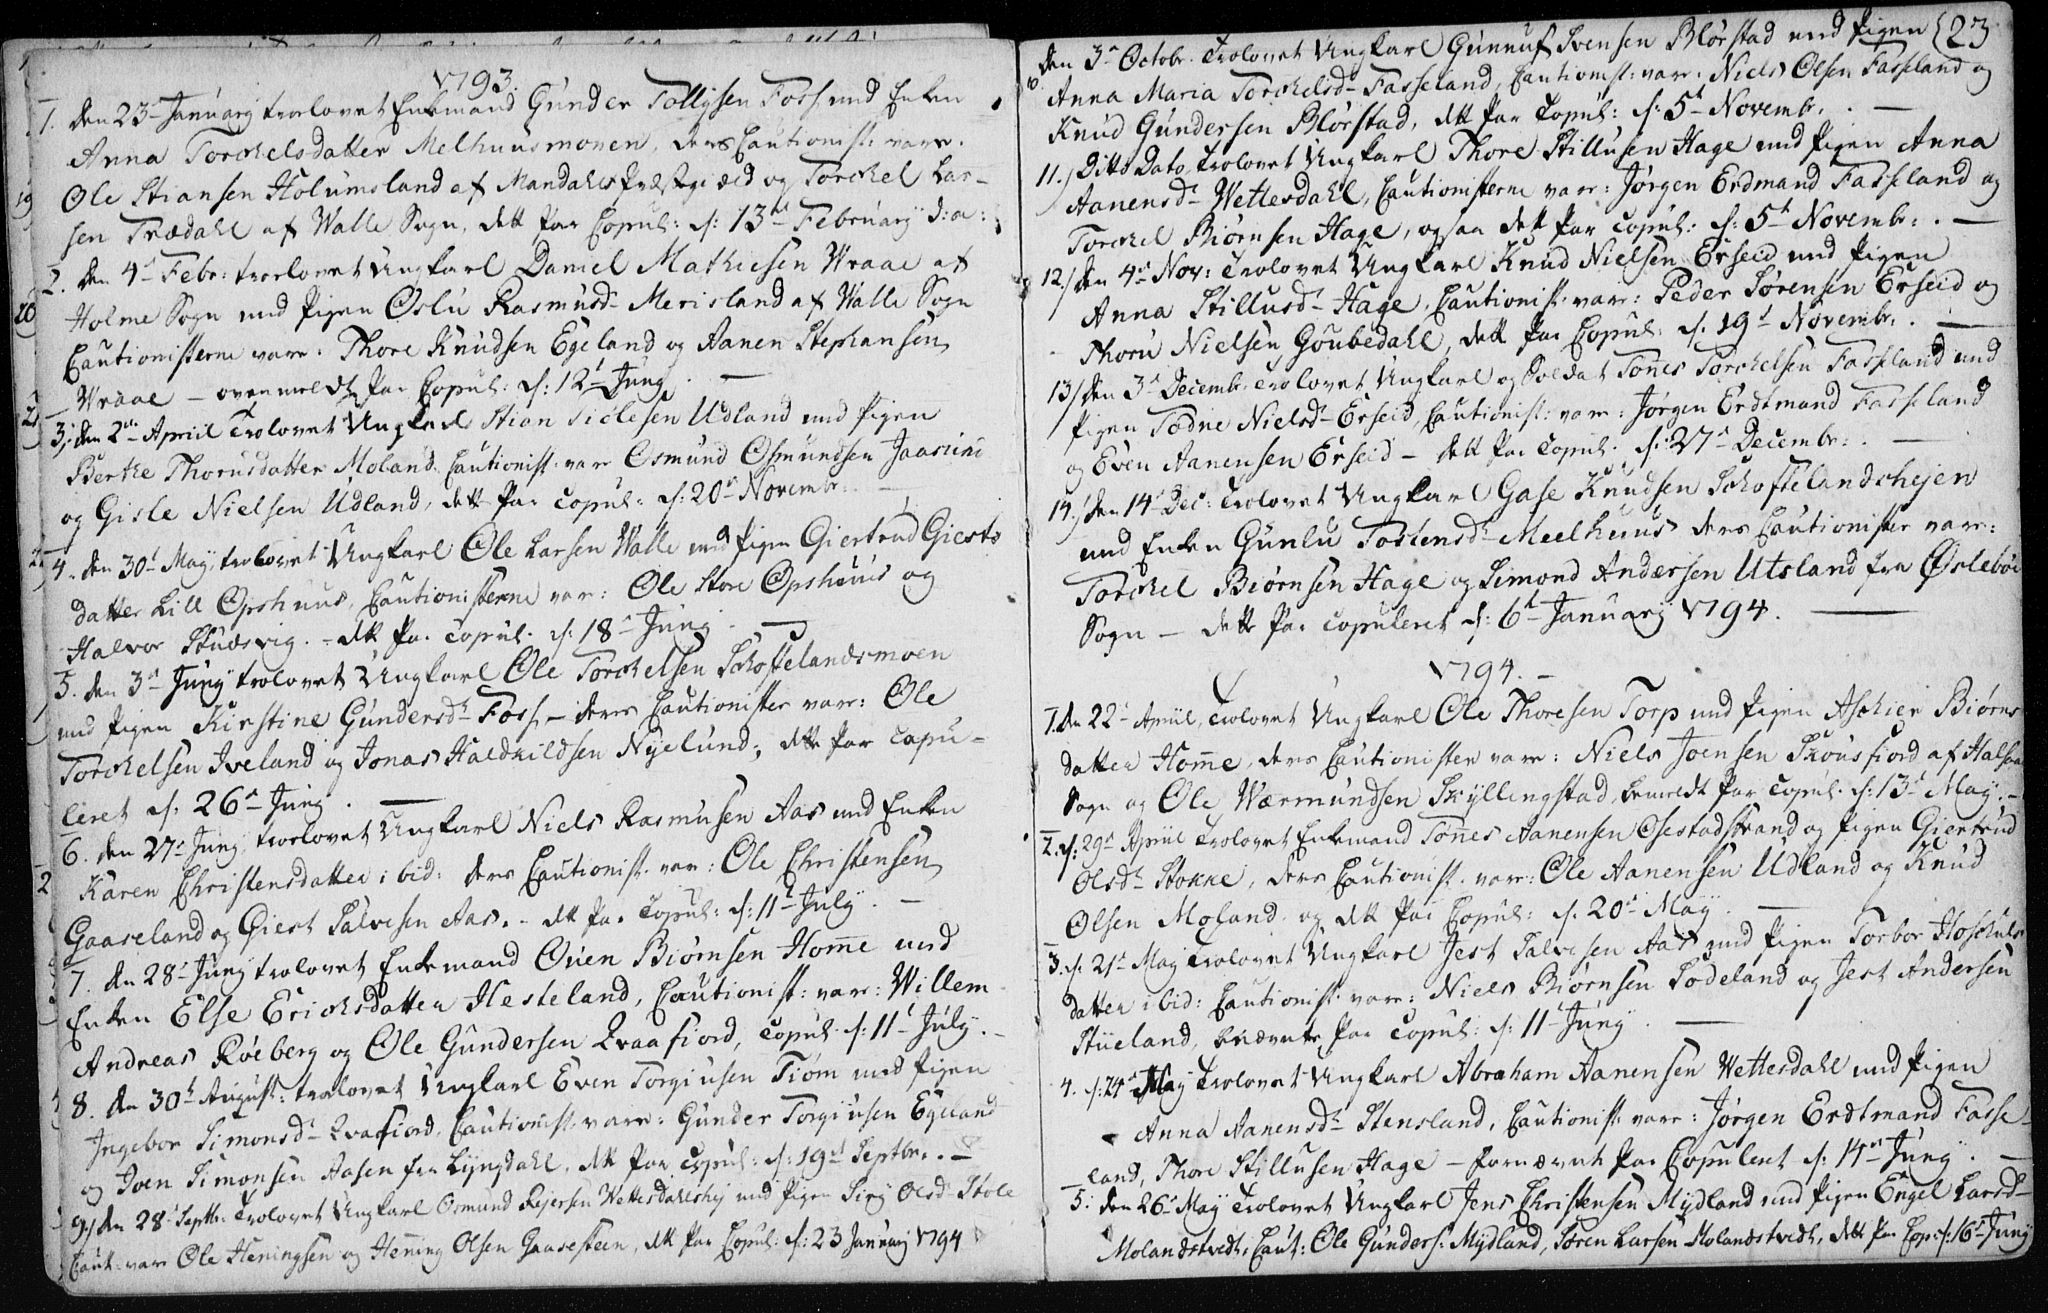 1793.
1. den 23de Januarÿ trorlovet Enkemand Gunder Tollÿsen Foss med Enken
Anna Torckelsdatter Melhuusmonen, ders Cautionist: vare.
Ole Stiansen Holumsland af Mandahls Præstegield og Torckel Lar-
sen Trædahl af Walle Sogn, dett Par Copul: d: 13de Februarÿ d: a:
2. den 4de Febr: trorlovet Ungkarl Daniel Mathiesen Wraae af
Holme Sogn med Pigen Oslu Rasmusd: Merisland af Walle Sogn
Cautionisterne vare: Thore Knudsen Egeland og Aanen Stephansen
Wraae – ovenmeldte Par Copul: d: 12t Junÿ. —
3. den 2den Apriil Trolovet Ungkarl Stian Siclesen Udland med Pigen
Berthe Thorusdatter Moland Cautionist: var Osmund Osmundsen Jaasund
og Gisle Nielsen Udland, dett Par Copul: d: 20de Novembr: —
4. den 30t Maÿ, trolovet Ungkarl Ole Larsen Walle med Pigen Giertrud Giests
datter Lill Opshuus, Cautionisterne var: Ole Store Opshuus og
Halvor Studsvig. – dtt Par Copul. d: 18de Junÿ. —
5. den 3de Junÿ trolovet Ungkarl Ole Torckelsen Schoffelandsmoen
med Pigen Kirstine Gundersd: Foss, – ders Cautionister vare: Ole
Torckelsen Iveland og Jonas Haldkildsen Nÿelund, dette Par Copu-
leret d: 26de Junÿ. —
6. den 27de Junÿ, trorlovet Ungkarl Niels Rasmusen Aas med Enken
Karen Christensdatter ibid: ders Cautionist. var: Ole Christensen
Gaaseland og Giest Salvesen Aas. – dtt Par Copul: d: 11t Julÿ. —
7. den 28de Junÿ trolovet Enkemand Ouen Biørnsen Home med
Enken Else Ericksdatter Hesteland, Cautionist: vare: Willem
Andreas Røeberg og Ole Gundersen Qvaafiord, Copul: d: 11t Julÿ. –
8. den 30t August: trolovet Ungkarl Even Torgiusen Tiøm med Pigen
Ingebor Simonsd: Qvafiord, Cautionist. vare: Gunder Torgiusen Egeland
og Joen Simonsen Aasen fra Lÿngdahl, dtt Par Copul: d: 19de Septbr. –
9. den 28de Septbr. Trolovet Ungkarl Osmund Reiersen Wettesdahlshej med Pigen Sirÿ Olsd: Stole
Caut: vare Ole Heningsen og Hening Olsen Gaasesteen, dtt Par Copul: d: 23 Januarÿ 1794
23
den 3de Octobr. Trolovet Ungkarl Gunnuf Svensen Blørstad med Pigen
Anna Maria Torckelsd: Fasseland, Cautionist: vare: Niels Olsen Fasseland og
Knud Gundersen Blørstad, dtt Par Copul: d: 5t Novembr. —
11. Ditto Dato Trolovet Ungkarl Thore Stillusen Hage med Pigen Anna
Aanensd: Wettesdahl, Cautionisterne var: Jørgen Erdmand Fasseland og
Torckel Biørnsen Hage, ogsaa dett Par Copul: d: 5t Novembr: —
12. den 4de Nov: Trolovet Ungkarl Knud Nielsen Erseid med Pigen
Anna Stillusd: Hage, Cautionist: vare: Peder Sørensen Erseid og
Thoru Nielsen Goubedahl, dett Par Copul: d: 19t Novembr. —
13. den 3de Decembr. Trolovet Ungkarl og Soldat Tones Torckelsen Fasseland med
Pigen Todne Nielsd: Erseid, Cautionist: var: Jørgen Erdtmand Fasseland
og Even Aanensen Erseid – dett Par Copul. d: 27de Decembr: —
14. den 14de Dec: Trolovet Ungkarl Gase Knudsen Schoftelandshejen
med Enken Gunlu Tostensd: Meelhuus ders Cautionister vare:
Torckel Biørnsen Hage og Simond Andersen Utsland fra Øslebøe
Sogn – dette Par Copuleret d: 6t Januarÿ 1794. —
1794. –
1. den 22de Apriil, Trolovet Ungkarl Ole Thoresen Torp med Pigen Aschier Biørns
datter Home, ders Cautionister vare: Niels Joensen Skousfiord af Halsaa
Sogn og Ole Wærmundsen Skÿllingstad, bemeldt Par Copul. d: 13de Maÿ. –
2. d: 29de Apriil Trolovet Enkemand Tönes Aanensen Osestadstrand og Pigen Giertrud
Olsd: Stokke, ders Cautionist. vare: Ole Aanensen Udland og Knud
Olsen Moland. og dtt Par Copul: d. 20de Maÿ. —
3. d. 21de Maÿ Trolovet Ungkarl Jest Salvesen Aas med Pigen Torbor Hoschuls
datter ibid: Cautionist. vare: Niels Biørnsen Sodeland og Jest Andersen
Stueland, benævnte Par Copul: d: 11t Junÿ. —
4. d: 24de Maÿ Trolovet Ungkarl Abraham Aanensen Wettesdahl med Pigen
Anna Aanensd: Stensland, Cautionist. vare: Jørgen Erdtmand Fasse-
land, Thore Stillusen Hage – fornævnte Par Copuleret d: 14de Junÿ. —
5. den 26de Maÿ Trolovet Ungkarl Jens Christensen Mÿdland med Pigen Engel Larsd:
Molandstvedt, Caut: Ole Gunders: Mÿdland, Søren Larsen Molandstvedt, dett Par Cop: d: 16de Junÿ